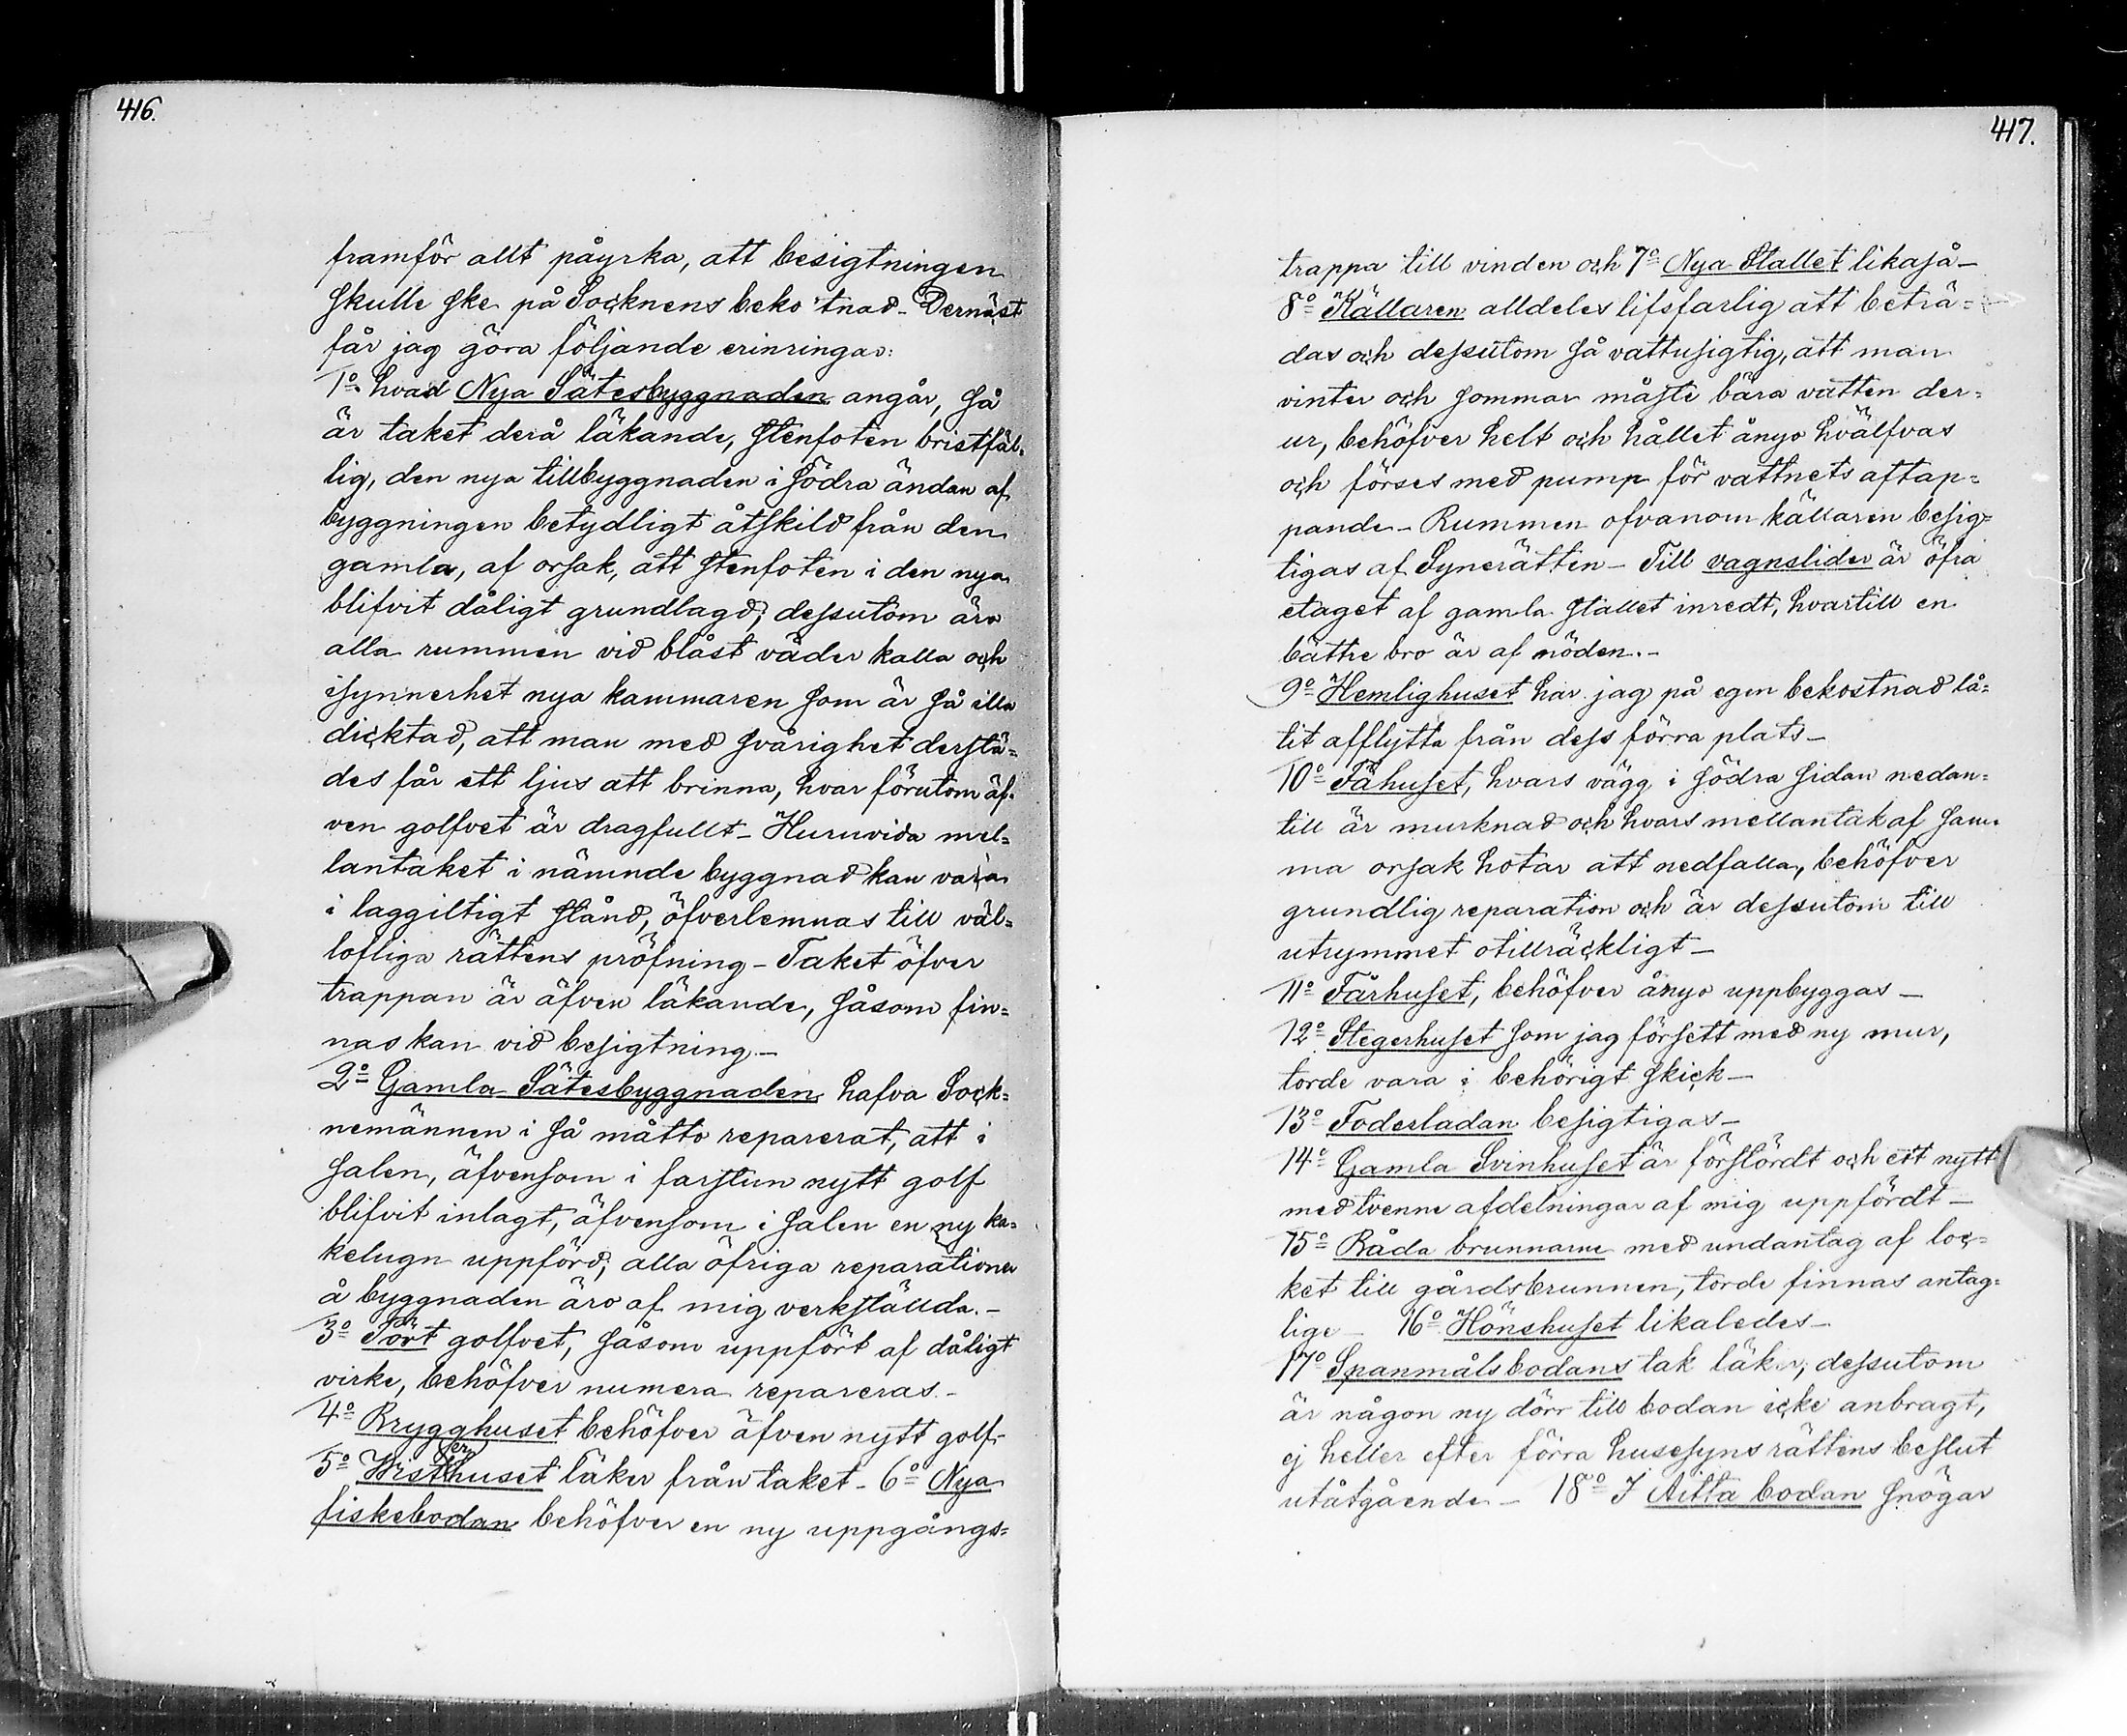 416.
framför allt påyrka, att besigtningen
skulle ske på Socknens beko'tnad - Dernäst
får jag göra följande erinringar:
1o hvad Nya Sätesbyggnaden angår, så
är taket derå läkande, stenfoten bristfäl-
lig, den nya tillbyggnaden i södra ändan af
byggningen betydligt åtskild från den
gamla, af orsak, att stenfoten i den nya
blifvit dåligt grundlagd; dessutom äro
alla rummen vid blåst väder kalla och
isynnerhet nya kammaren som är så illa
dicktad, att man med svårighet derstä=
des får ett ljus att brinna, hvar förutom äf-
ven golfvet är dragfullt - Huruvida mel=
lantaket i nämnde byggnad kan vara
i laggiltigt stånd, öfverlemnas till väl=
lofliga rättens pröfning - Taket öfver
trappan är äfven läkande, såsom fin=
nas kan vid besigtning. -
2o Gamla Sätesbyggnaden hafva Sock=
nemännen i så måtto reparerat, att i
salen, äfvensom i farstun nytt golf
blifvit inlagt, äfvensom i salen en ny ka=
kelugn uppförd; alla öfriga reparationer
å byggnaden äro af mig verkställda. -
3o Pört golfvet, såsom uppfört af dåligt
virke, behöfver numera repareras. -
4o Brygghuset behöfver äfven nytt golf -
5o Wisterhuset läker från taket - 6o Nya
fiskebodan behöfver en ny uppgångs=
417.
trappa till vinden och 7o Nya Stallet likaså -
8o Källaren alldeles lifsfarlig att beträ=
das och dessutom så vattusigtig, att man
vinter och sommar måste bära vatten der=
ur, behöfver helt och hållet ånyo hvälfvas
och förses med pump för vattnets aftap=
pande - Rummen ofvanom källaren besig=
tigas af Synerätten - Till vagnslider är öfra
etaget af gamla stallet inredt, hvartill en
bättre bro är af nöden. -
9o Hemlighuset har jag på egen bekostnad lå=
tit afflytta från dess förra plats -
10o Fähuset, hvars vägg i södra sidan nedan=
till är murknad och hvars mellantak af sam-
ma orsak hotar att nedfalla, behöfver
grundlig reparation och är dessutom till
utrymmet otillräckligt -
11o Fårhuset, behöfver ånyo uppbyggas -
12o Stegerhuset som jag försett med ny mur,
torde vara i behörigt skick -
13o Foderladan besigtigas -
14o Gamla Svinhuset är förstördt och ett nytt
med tvenne afdelningar af mig uppfördt -
15o Båda brunnarne med undantag af loc=
ket till gårdsbrunnen, torde finnas antag=
lige - 16o Hönshuset likaledes -
17o Spanmålsbodans tak läker, dessutom
är någon ny dörr till bodan icke anbragt,
ej heller efter förra husesyns rättens beslut
utåtgående - 18o I Aitta bodan snögar